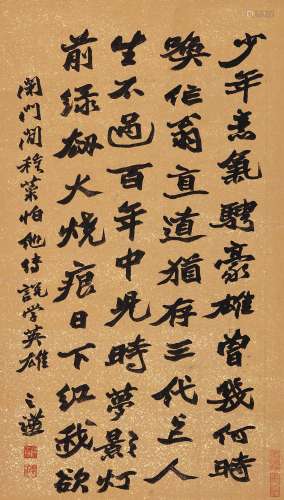 少年意氣騁豪雄曾幾何時
喚作翁直道猶存三代上人
生不過百年中兒時夢影燈
前綠劫火燒痕日下紅我欲
閉門閒種菜怕他傳說學英雄
之謙